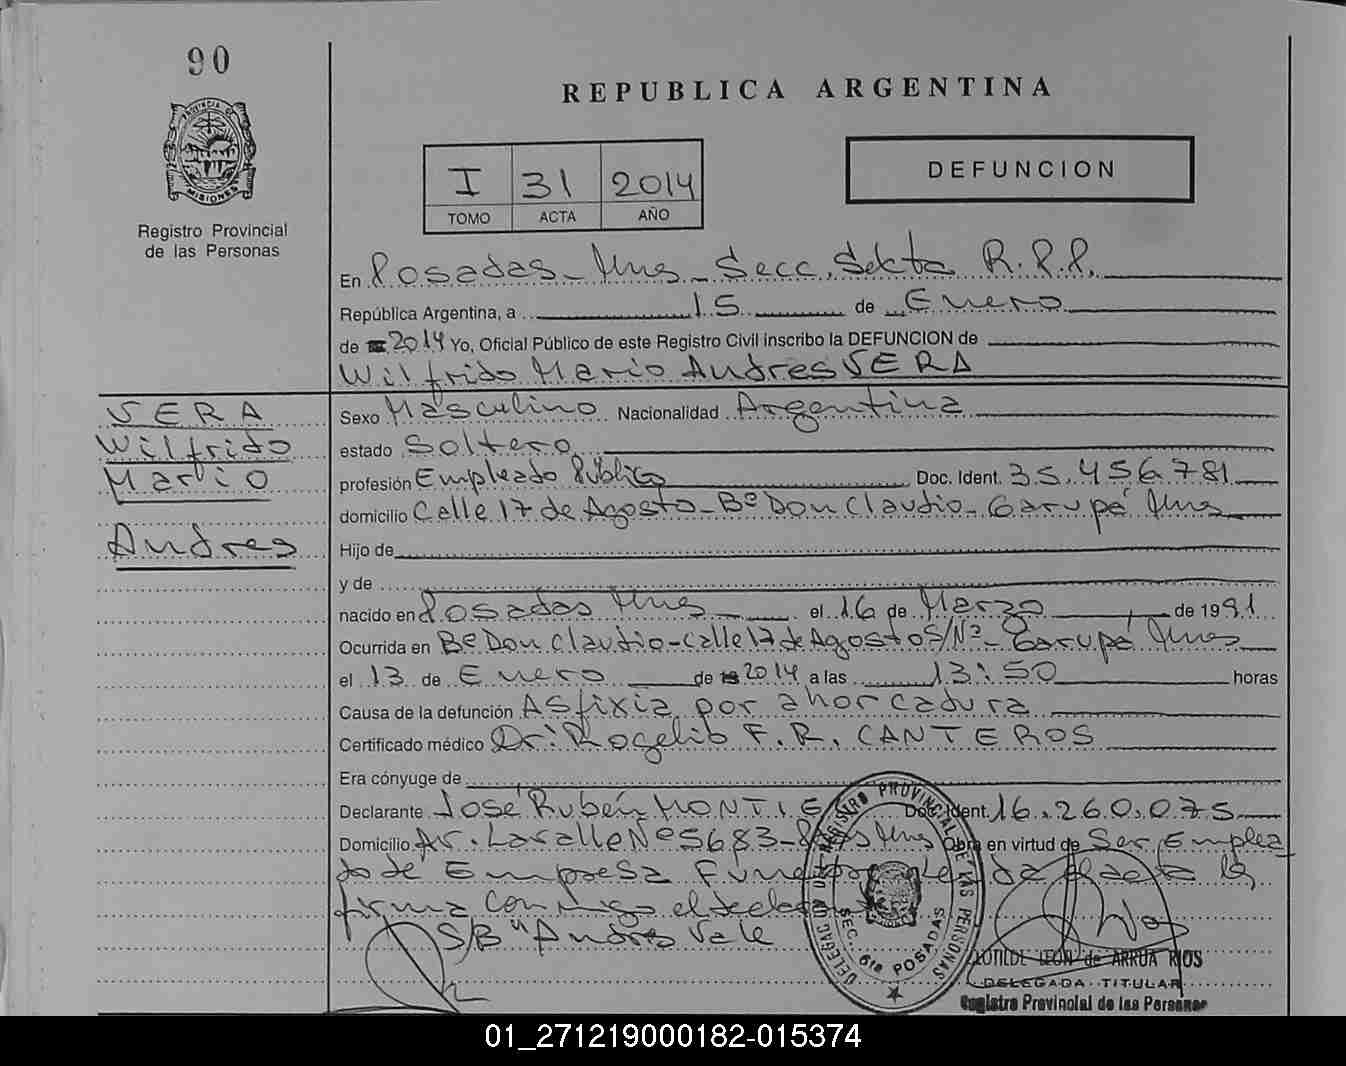 90
PROVINCIA DE
MISIONES
Registro Provincial
de las Personas
REPUBLICA ARGENTINA
I 31 2014
TOMO ACTA AÑO
DEFUNCION
En Posadas - Mnes - Secc. Sexta R.P.P.
República Argentina, a 15 de Enero
de 2014 Yo, Oficial Público de este Registro Civil inscribo la DEFUNCION de
Wilfrido Mario Andres SERA
SERA
Wilfrido
Mario
Andres
Sexo Masculino Nacionalidad Argentina
estado Soltero
profesión Empleado Público Doc. Ident. 35.456.781
domicilio Calle 17 de Agosto - Bº Don Claudio - Garupá Mnes
Hijo de
y de
nacido en Posadas Mnes el 16 de Marzo de 1991
Ocurrida en Bº Don Claudio - Calle 17 de Agosto S/Nº - Garupá Mnes
el 13 de Enero de 2014 a las 13:50 horas
Causa de la defunción Asfixia por ahorcadura
Certificado médico Dr: Rogelio F. R. CANTEROS
Era cónyuge de
Declarante José Rubén MONTIE Doc. Ident. 16.260.075
Domicilio Av. Lavalle Nº 5683 - Mnes Obra en virtud de Ser Emplea
do de Empresa Funebre Leida el acta la
firma conmigo el declarante
S/B "Andres Vale
DELEGACION DEL REGISTRO PROVINCIAL DE LAS PERSONAS
SEC. 6ta POSADAS
CLOTILDE LEON de ARRUA RIOS
DELEGADA TITULAR
Registro Provincial de las Personas
01_271219000182-015374